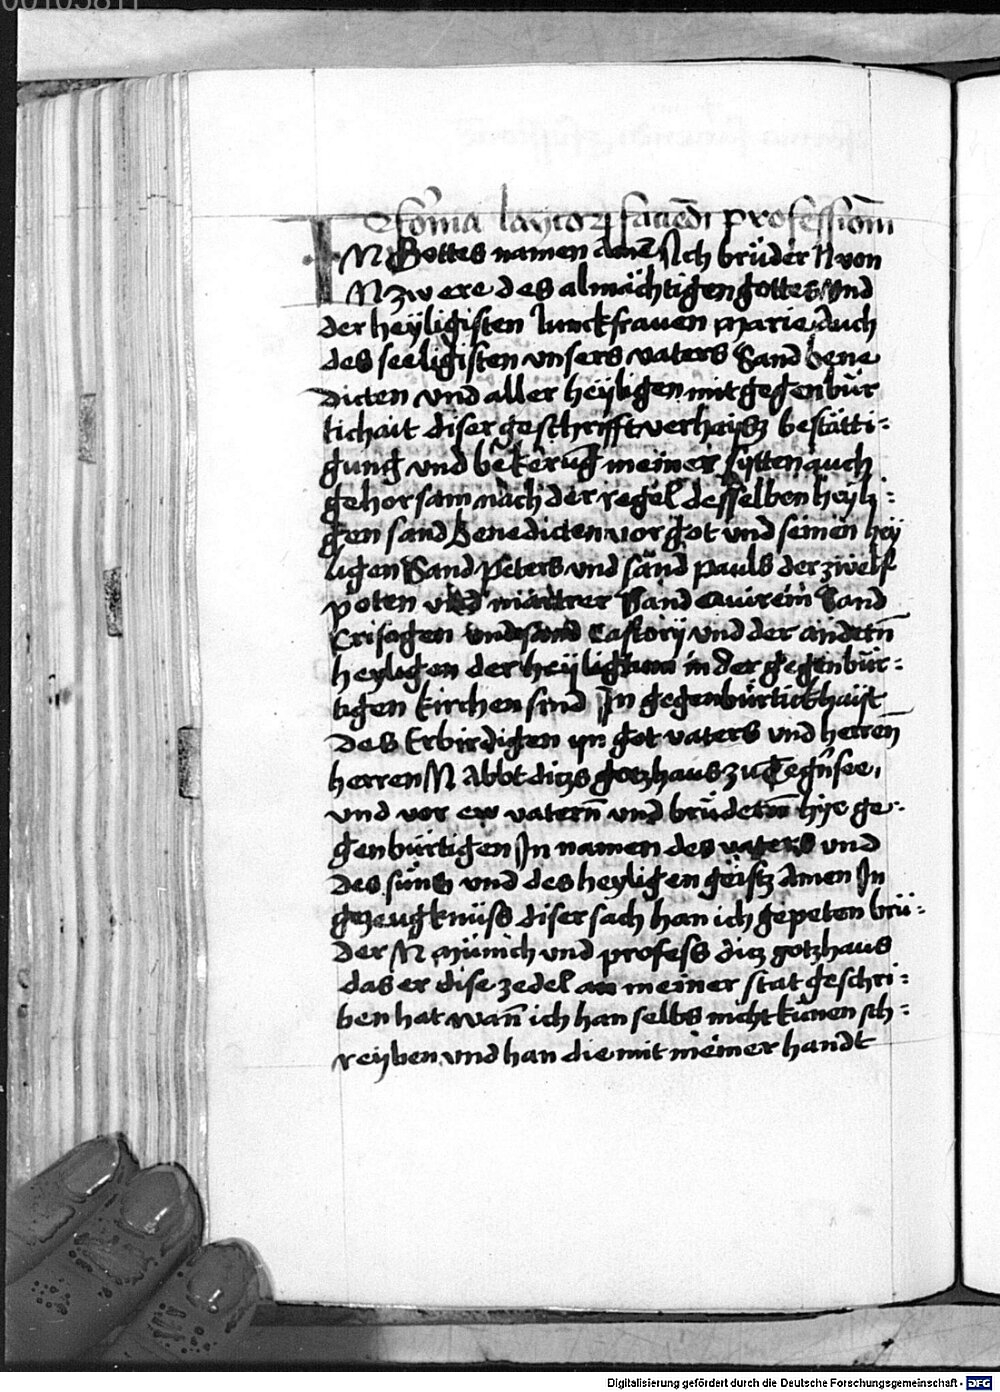 00105811
De forma laycorum faciendi professionem
IN Gottes namen amen Ich brüder N von
N zw ere des almächtigen gottes Vnd
der heyligisten Junckfrawen Marie Auch
des seeligisten vnsers vaters Sand bene
dicten vnd aller heyligen mit gegenbür
tichait diser geschrifft verhaisz bestätti-
gung vnd bekerūg meiner sytten auch
gehorsam nach der regel desselben heyli-
gen sand Benedicten vor got vnd seinen hey
ligen Sand Peters vnd sand pauls der zwelf
poten vnd martrer Sand Quirein Sand
Crisogen vnd sand Castorij vnd der andern̄
heyligen der heyligtum in der gegenbür-
tigen kirchen sind In gegenbürtickhaijt
Des Erbirdigen yn got vaters vnd herren̄
herren N Abbt ditzs gotzhaus zu Tegn̄see,
vnd vor ew vatern̄ vnd brüdern̄ hye ge-
genbürtigen In namen des vaters vnd
des süns vnd des heyligen geistz Amen In
gezeugknüss diser sach han ich gepeten brü-
der N Münich vnd profess ditz gotzhaus
das er dise zedel an meiner stat geschri-
ben hat wan̄ ich han selbs nicht künen sch-
reyben vnd han die mit meiner handt
Digitalisierung gefördert durch die Deutsche Forschungsgemeinschaft - DFG